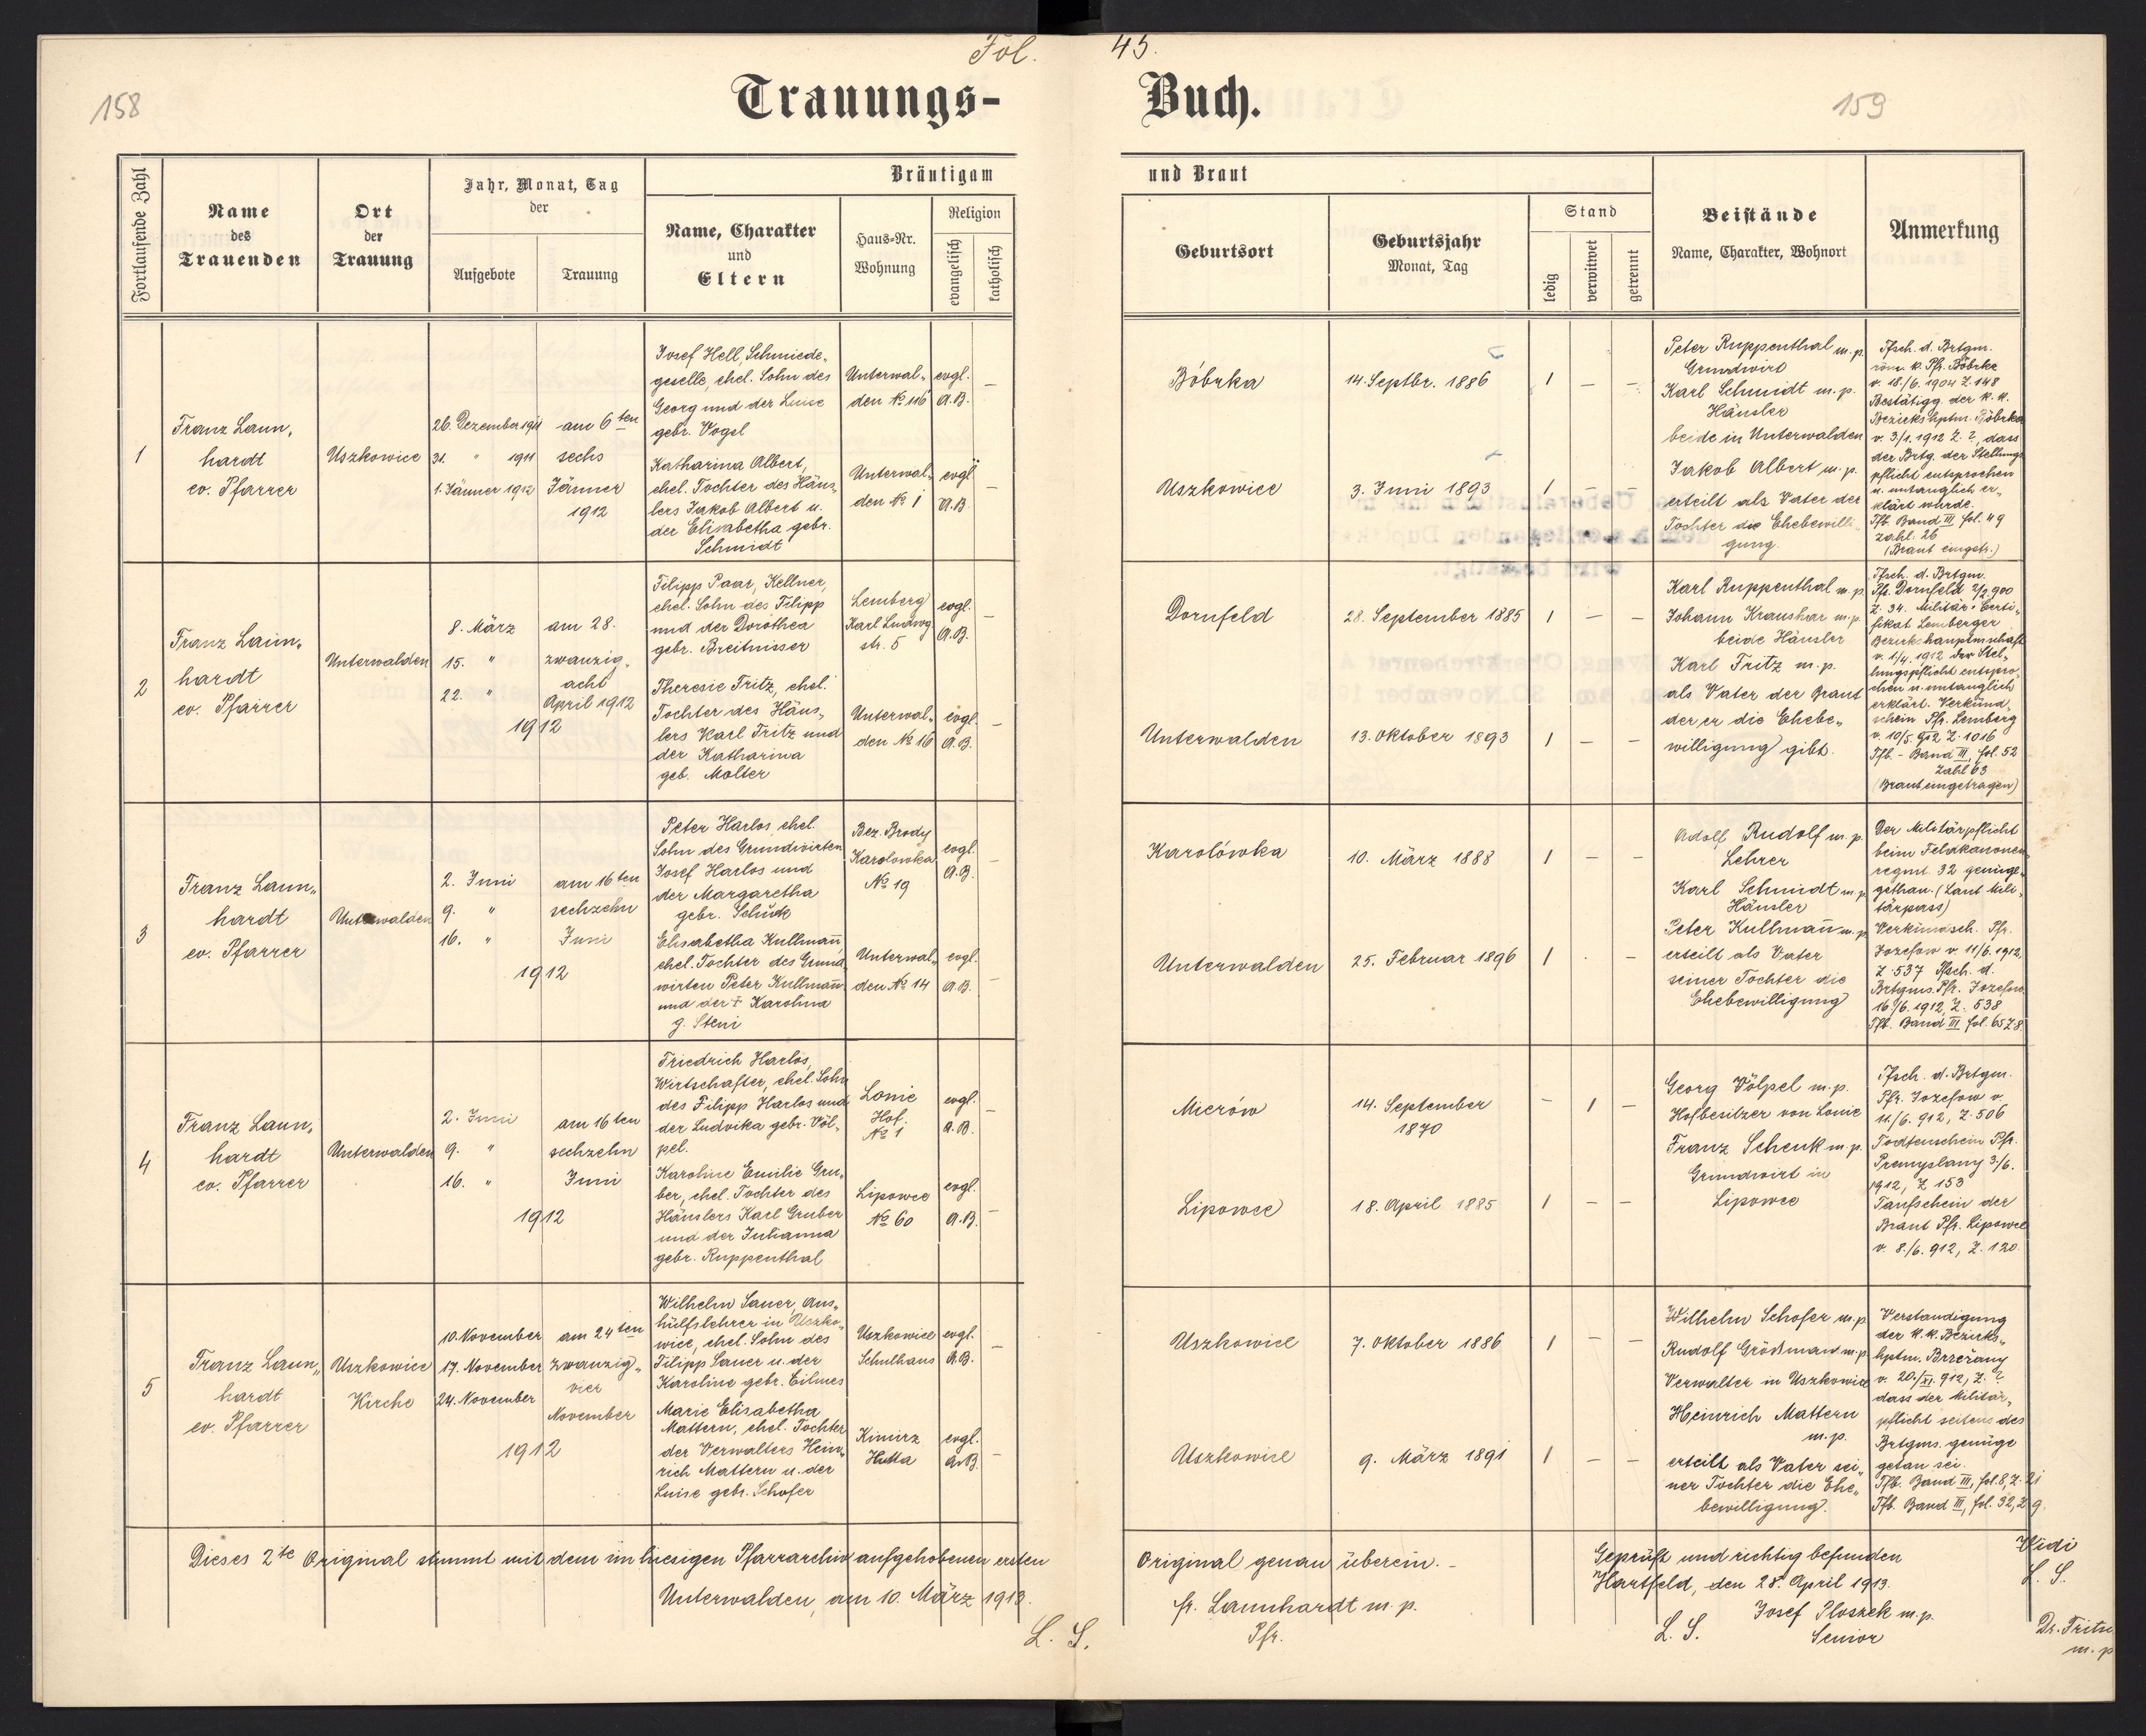 Fol. 45.
158
Trauungs- Buch.
159
Fortlaufende Zahl
Name
des
Trauenden
Ort
der
Trauung
Jahr, Monat, Tag
der
Aufgebote
Trauung
Bräutigam
Name, Charakter
und
Eltern
Haus-Nr.
Wohnung
Religion
evangelisch
katholisch
und Braut
Geburtsort
Geburtsjahr
Monat, Tag
Stand
ledig
verwitwet
getrennt
Beistände
Name, Charakter, Wohnort
Anmerkung
1
Franz Laun„
hardt
ev. Pfarrer
Uszkowice
26. Dezember 1911
31. " 1911
1. Jänner 1912
am 6ten
sechs
Jänner
1912
Josef Hell, Schmiede„
geselle, ehel. Sohn des
Georg und der Luise
gebr. Vogel
Unterwal„
den № 116
evgl.
A.B.
–
Katharina Albert,
ehel. Tochter des Häus„
lers Jakob Albert u.
der Elisabetha gebr.
Schmidt
Unterwal„
den № 1
evgl.
A.B.
–
Bóbrka
14. Septbr. 1886
1 – –
Uszkowice
3. Juni 1893
1 – –
Peter Ruppenthal m. p.
Grundwirt
Karl Schmidt m. p.
Häusler
beide in Unterwalden
Jakob Albert m. p.
erteilt als Vater der
Tochter die Ehebewilli„
gung.
Tfsch. d. Brtgm.
röm. k. Pfr. Bóbrka
v. 18./6. 1904 Z. 148
Bestätigg. der k. k.
Bezirkshptm. Bóbrka
v. 3/1. 1912 Z. ?, dass
der Brtg. der Stellungs
pflicht entsprochen
u. untauglich er„
klärt wurde.
Tfb. Band III fol. 49
Zahl. 26
(Braut eingetr.)
2
Franz Laun„
hardt
ev. Pfarrer
Unterwalden
8. März
15. "
22. "
am 28.
zwanzig„
acht
April 1912
1912
Filipp Paar, Kellner,
ehel. Sohn des Filipp
und der Dorothea
gebr. Breitnisser
Lemberg
Karl Ludwg
str. 5
evgl.
A.B.
–
Theresie Fritz, ehel.
Tochter des Häus„
lers Karl Fritz und
der Katharina
geb. Molter
Unterwal„
den № 16
evgl.
A.B.
–
Dornfeld
28. September 1885
1 – –
Unterwalden
13. Oktober 1893
1 – –
Karl Ruppenthal m. p.
Johann Kraushar m. p.
beide Häusler
Karl Fritz m. p.
als Vater der Braut
der er die Ehebe„
willigung gibt.
Tfsch. d. Brtgm.
Pfr. Dornfeld 2/2 900
Z. 34. Militär-Certi„
fikat Lemberger
Bezirkshauptmschaft
v. 1/4. 1912 der Stel„
lungspflicht entspro„
chen u. untauglich
erklärt. Verkünd„
schein Pfr. Lemberg
v. 10/5 912 Z. 1016
Tfb. - Band III, fol. 52
Zahl 63
(Braut eingetragen)
3
Franz Laun„
hardt
ev. Pfarrer
Unterwalden
2. Juni
9. "
16. "
am 16ten
sechzehn
Juni
1912
Peter Harlos, ehel.
Sohn des Grundwirten
Josef Harlos und
der Margaretha
gebr. Schück
Bez. Brody
Karolowka
№ 19
evgl.
A.B.
–
Elisabetha Kullmañ,
ehel. Tochter des Grund„
wirten Peter Kullmañ
und der † Karolina
g. Steni
Unterwal„
den № 14
evgl.
A.B.
–
Karolówka
10. März 1888
1 – –
Unterwalden
25. Februar 1896
1 . –
Adolf Rudolf m. p.
Lehrer
Karl Schmidt m. p.
Häusler
Peter Kullmañ m. p.
erteilt als Vater
seiner Tochter die
Ehebewilligung
Der Militärpflicht
beim Feldkanonen„
regmt. 32 genüge„
gethan. (Laut Mili„
tärpass)
Verkündsch. Pfr.
Jozefow v. 11/6. 1912,
Z. 537 Tfsch. d.
Brtgms. Pfr. Jozefow
16./6. 1912, Z. 538
Tfb. Band III fol. 65 Z. 8.
4
Franz Laun„
hardt
ev. Pfarrer
Unterwalden
2. Juni
9. "
16. "
am 16ten
sechzehn
Juni
1912
Friedrich Harlos,
Wirtschafter, ehel. Sohn
des Filipp Harlos und
der Ludvika gebr. Völ„
pel.
Lonie
Hof.
№ 1
evgl.
A.B.
–
Karoline Emilie Gru„
ber, ehel. Tochter des
Häuslers Karl Gruber
und der Julianna
gebr. Ruppenthal
Lipowce
№ 60
evgl.
A.B.
–
Mierów
14. September
1870
– 1 –
Lipowce
18. April 1885
1 – –
Georg Völpel m. p.
Hofbesitzer von Lonie
Franz Schenk m. p.
Grundwirt in
Lipowce
Tfsch. d. Brtgm.
Pfr. Jozefow v.
11./6. 912, Z. 506
Todtenschein Pfr.
Premyslany 3./6.
1912, Z 153
Taufschein der
Braut Pfr. Lipowce
v. 8./6. 912, Z. 120.
5
Franz Laun„
hardt
ev. Pfarrer
Uszkowice
Kirche
10. November
17. November
24. November
am 24ten
zwanzig„
vier
November
1912
Wilhelm Sauer, Aus„
hülfslehrer in Uszko„
wice, ehel. Sohn des
Filipp Sauer u. der
Karoline gebr. Eilmes
Uszkowice
Schulhaus
evgl.
A.B.
–
Marie Elisabetha
Mattern, ehel. Tochter
der Verwalters Hein„
rich Mattern u. der
Luise gebr. Schofer
Kimirz
Hutta
evgl.
A.B.
–
Uszkowice
7. Oktober 1886
1 – –
Uszkowice
9. März 1891
1 – –
Wilhelm Schofer m. p.
Rudolf Größman m. p.
Verwalter in Uszkowice
Heinrich Mattern
m. p.
erteilt als Vater sei„
ner Tochter die Ehe„
bewilligung.
Verstandigung
der k. k. Bezirks„
hptm. Brzeżany
v. 20./XI. 912, Z. ?
dass der Militär„
pflicht seitens des
Brtgms. genüge
getan sei.
Tfb. Band III, fol. 8, Z. 21
Tfb. Band III, fol. 32, Z 9.
Dieses 2te Original stimmt mit dem im hiesigen Pfarrarchiv aufgehobenen ersten Original genau überein. –
Unterwalden, am 10. März 1913.
L. S.
fr. Launhardt m. p.
Pfr.
Geprüft und richtig befunden
Hartfeld, den 28. April 1913.
L. S.
Josef Ploszek m. p.
Senior
Vidi
L. S.
Dr. Fritsche
m. p.